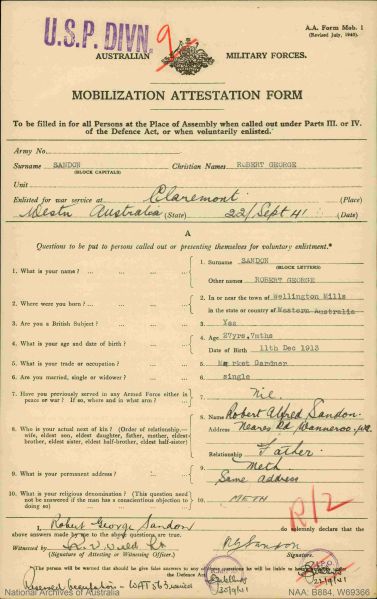 U.S.P. DIVN.
9
A.A. Form Mob. 1
(Revised July, 1940).
AUSTRALIAN MILITARY FORCES.
MOBILIZATION ATTESTATION FORM
To be filled in for all Persons at the Place of Assembly when called out under Parts III. or IV.
of the Defence Act, or when voluntarily enlisted.*
Army No.
Surname SANDON Christian Names ROBERT GEORGE
(BLOCK CAPITALS)
Unit
Enlisted for war service at Claremont (Place)
Westn Australia (State) 22/Sept 41 (Date)
A
Questions to be put to persons called out or presenting themselves for voluntary enlistment.*
1. What is your name? 1. Surname SANDON
(BLOCK LETTERS)
Other names ROBERT GEORGE
2. Where were you born? 2. In or near the town of Wellington Mills
in the state or country of Western Australia
3. Are you a British Subject? 3. Yes
4. What is your age and date of birth? 4. Age 27yrs. 7mths
Date of Birth 11th Dec 1913
5. What is your trade or occupation? 5. Market Gardner
6. Are you married, single or widower? 6. single
7. Have you previously served in any Armed Force either in peace or war? If so, where and in what arm? 7. Nil.
8. Who is your actual next of kin? (Order of relationship—wife, eldest son, eldest daughter, father, mother, eldest brother, eldest sister, eldest half-brother, eldest half-sister) 8. Name Robert Alfred Sandon.
Address Neares Rd Wanneroo, WA.
Relationship Father.
Meth
9. What is your permanent address? 9. Same address
10. What is your religious denomination? (This question need not be answered if the man has a conscientious objection to doing so) 10. METH
R/2
I, Robert George Sandon do solemnly declare that the
above answers made by me to the above questions are true.
Witnessed by R G Sandon
(Signature of Attesting or Witnessing Officer.) Signature.
*The person will be warned that should he give false answers to any of these questions he will be liable to
the Defence Act.
25/9/41
National Archives of Australia NAA: B884, W69366